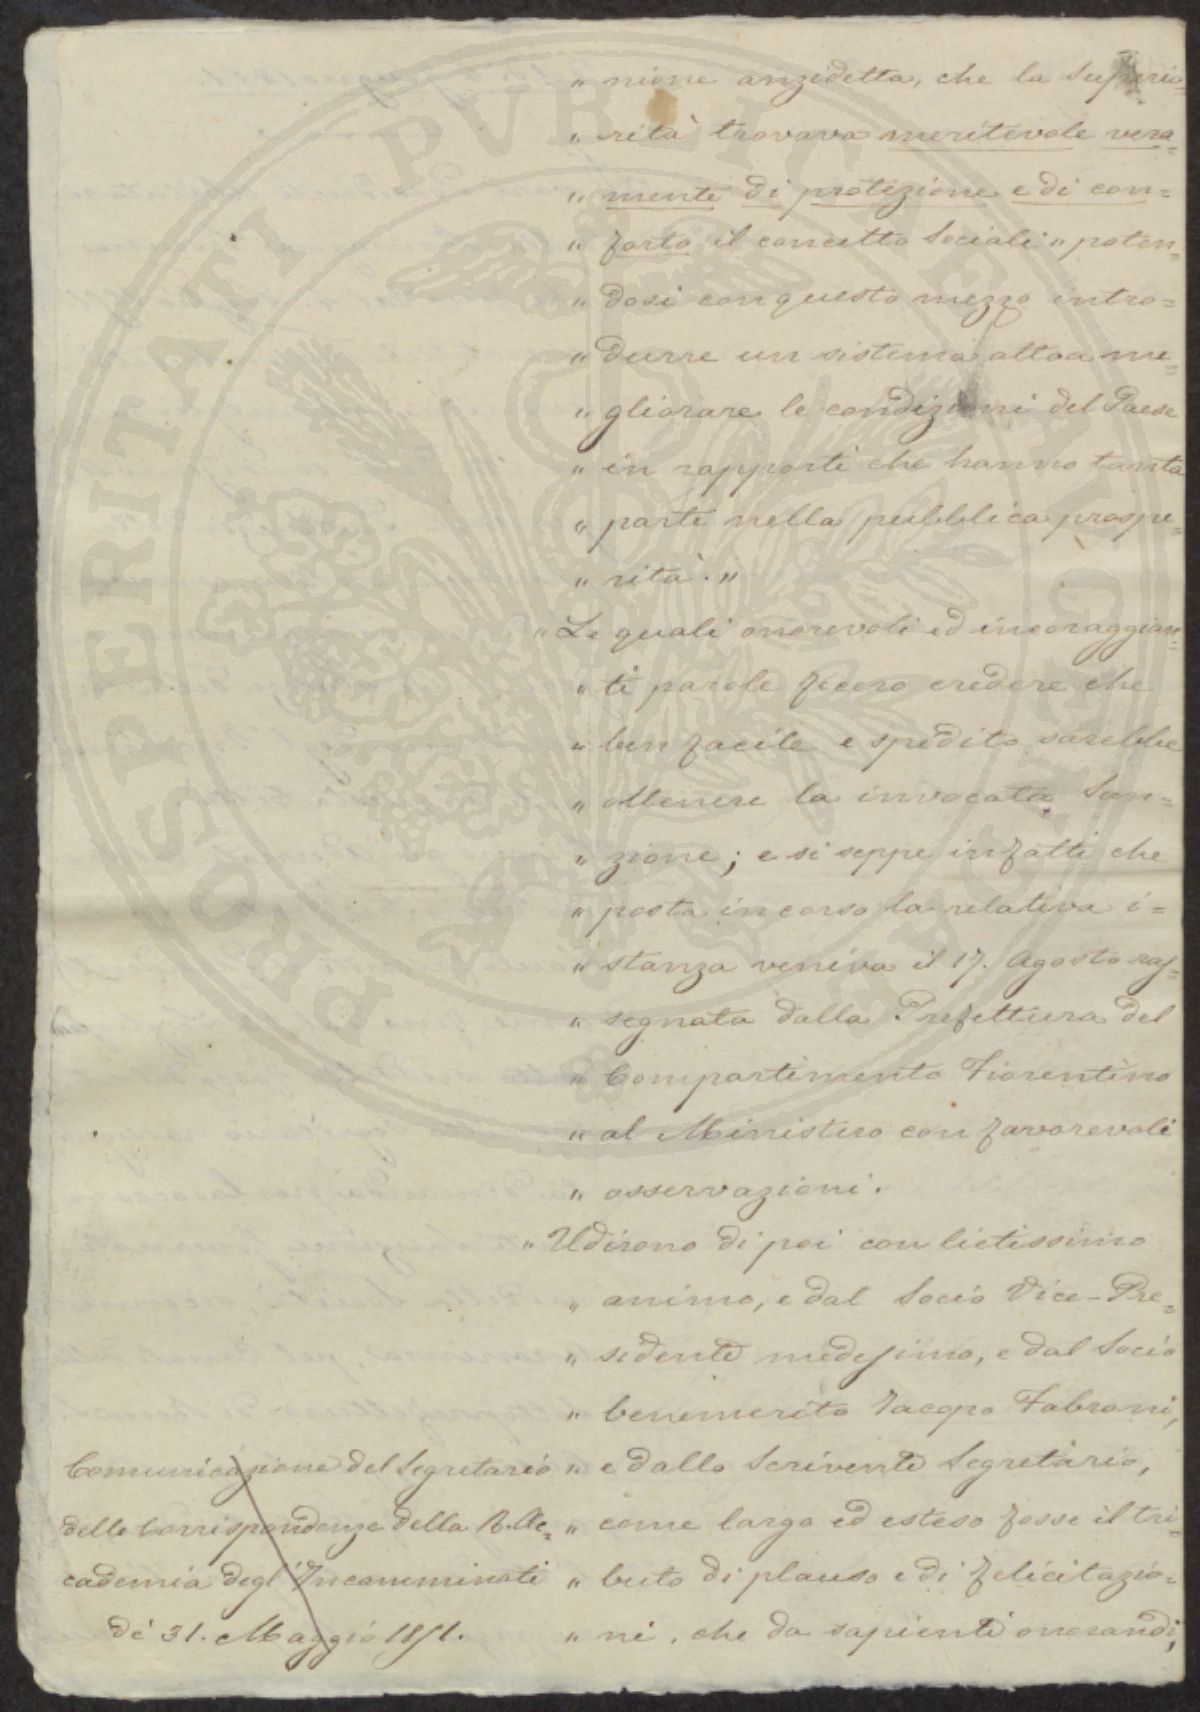 „ nione anzidetta, che la Superio=
„ rità trovava meritevole vera=
„ mente di protezione e di con=
„ forto il concetto Sociale „ poten=
„ dosi con questo mezzo intro=
„ durre un sistema atto a me=
„ gliorare le condizioni del Paese
„ in rapporti che hanno tanta
„ parte nella pubblica prospe=
„ rità. „
„ Le quali onorevoli ed incoraggian=
„ ti parole fecero credere che
„ ben facile e spedito sarebbe
„ ottenere la invocata San=
„ zione; e si seppe infatti che
„ posta in corso la relativa i=
„ stanza veniva il 17. Agosto ras=
„ segnata dalla Prefettura del
„ Compartimento Fiorentino
„ al Ministero con favorevoli
„ osservazioni.
„ Udirono di poi con lietissimo
„ animo, e dal Socio Vice-Pre=
„ sidente medesimo, e dal Socio
„ benemerito Jacopo Fabroni,
„ e dallo Scrivente Segretario,
„ come largo ed esteso fosse il tri=
„ buto di plauso e di felicitazio=
„ ni, che da sapienti onorandi,
Comunicazione del Segretario
delle Corrispondenze della R. Ac=
cademia degl'Incamminati
de' 31. Maggio 1851.
PROSPERITATI PVBLICAE AVGENDAE